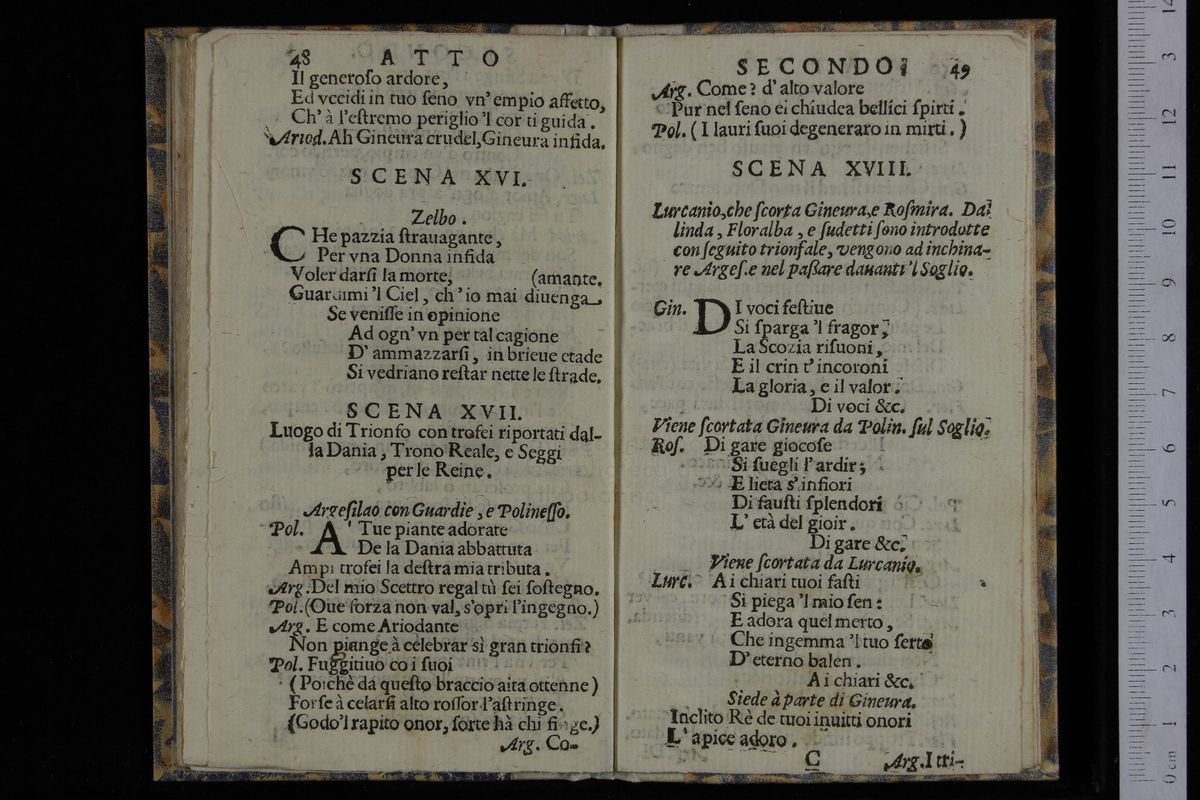 48 ATTO
Il generoſo ardore,
Ed vccidi in tuo ſeno vn' empio affetto,
Ch' à l'eſtremo periglio 'l cor ti guida.
Ariod. Ah Gineura crudel, Gineura infida.
SCENA XVI.
Zelbo.
CHe pazzia ſtrauagante,
Per vna Donna infida
Voler darſi la morte, (amante.
Guardimi 'l Ciel, ch' io mai diuenga
Se veniſſe in opinione
Ad ogn' vn per tal cagione
D' ammazzarſi, in brieue etade
Si vedriano reſtar nette le ſtrade.
SCENA XVII.
Luogo di Trionfo con trofei riportati dal-
la Dania, Trono Reale, e Seggi
per le Reine.
Argeſilao con Guardie, e Polineſſo.
Pol. A' Tue piante adorate
De la Dania abbattuta
Ampi trofei la deſtra mia tributa.
Arg. Del mio Scettro regal tù ſei ſoſtegno.
Pol. (Oue forza non val, s'opri l'ingegno.)
Arg. E come Ariodante
Non piange à celebrar sì gran trionfi?
Pol. Fuggitiuo co i ſuoi
(Poichè da queſto braccio aita ottenne)
Forſe à celarſi alto roſſor l'aſtringe.
(Godo 'l rapito onor, ſorte hà chi finge.)
Arg. Co-
SECONDO. 49
Arg. Come? d' alto valore
Pur nel ſeno ei chiudea bellici ſpirti.
Pol. (I lauri ſuoi degeneraro in mirti.)
SCENA XVIII.
Lurcanio, che ſcorta Gineura, e Roſmira. Da-
linda, Floralba, e ſudetti ſono introdotte
con ſeguito trionfale, vengono ad inchina-
re Argeſ. e nel paſſare dauanti 'l Soglio.
Gin. DI voci feſtiue
Si ſparga 'l fragor,
La Scozia riſuoni,
E il crin t' incoroni
La gloria, e il valor.
Di voci &c.
Viene ſcortata Gineura da Polin. ſul Soglio.
Roſ. Di gare giocoſe
Si ſuegli l'ardir;
E lieta s' infiori
Di fauſti ſplendori
L' età del gioir.
Di gare &c.
Viene ſcortata da Lurcanio.
Lurc. A i chiari tuoi faſti
Si piega 'l mio ſen:
E adora quel merto,
Che ingemma 'l tuo ſerto
D' eterno balen.
A i chiari &c.
Siede à parte di Gineura.
Inclito Rè de tuoi inuitti onori
L' apice adoro.
C Arg. I tri-